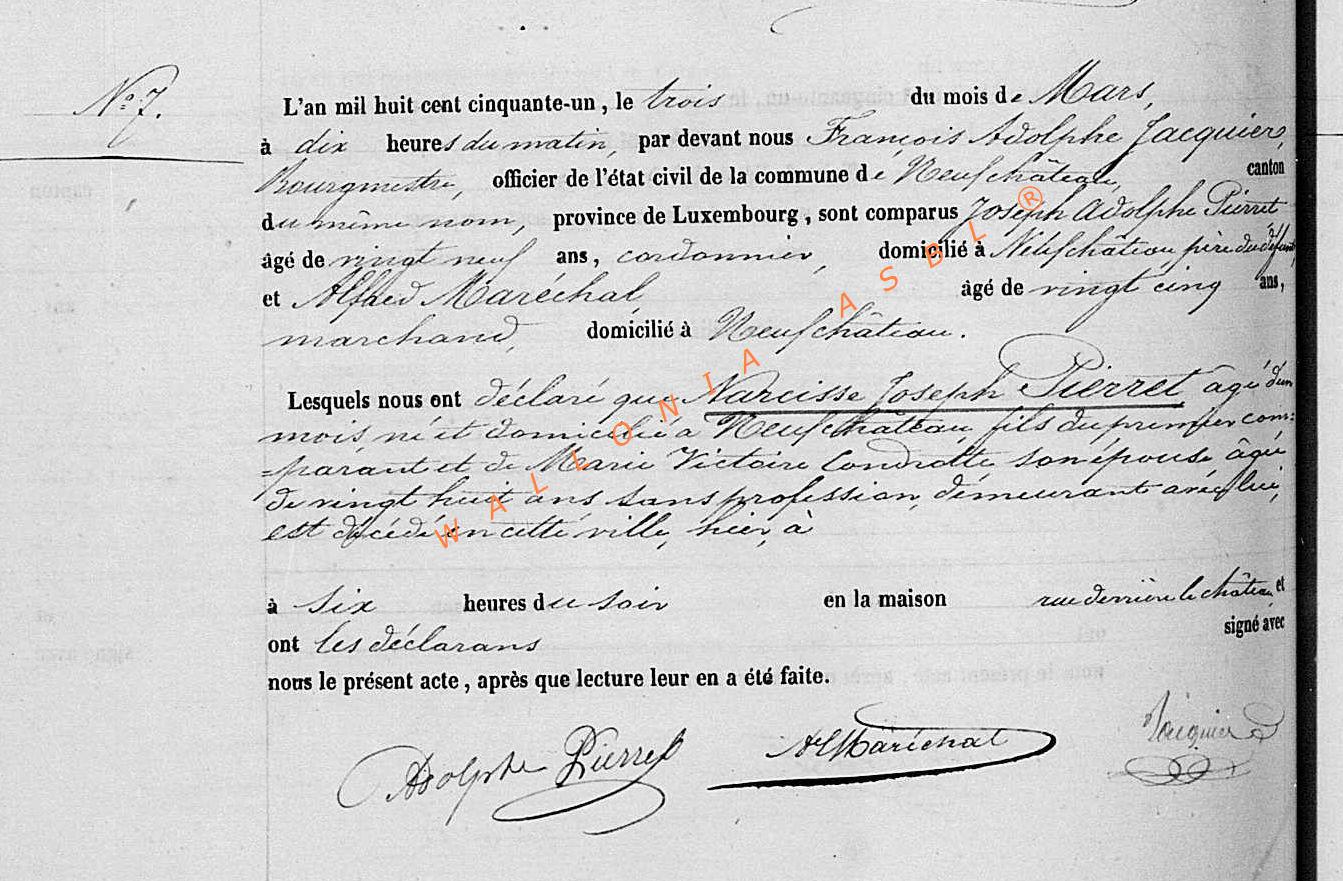 N° 7.
L'an mil huit cent cinquante-un, le trois du mois de Mars,
à dix heures du matin, par devant nous François Adolphe Jacquier,
Bourgmestre, officier de l'état civil de la commune de Neufchâteau, canton
du même nom, province de Luxembourg, sont comparus Joseph Adolphe Pierret
âgé de vingt neuf ans, cordonnier, domicilié à Neufchâteau père du défunt,
et Alfred Maréchal âgé de vingt cinq ans,
marchand, domicilié à Neufchâteau.
Lesquels nous ont déclaré que Narcisse Joseph Pierret âgé d'un
mois né et domicilié à Neufchâteau, fils du premier com=
=parant et de Marie Victoire Condrotte son épouse âgée
de vingt huit ans sans profession, demeurant avec lui,
est décédé en cette ville, hier, à
à six heures du soir en la maison rue derrière le château, et
ont les déclarans signé avec
nous le présent acte, après que lecture leur en a été faite.
Adolphe Pierret AlMaréchal Jacquier
WALLONIA ASBL ®